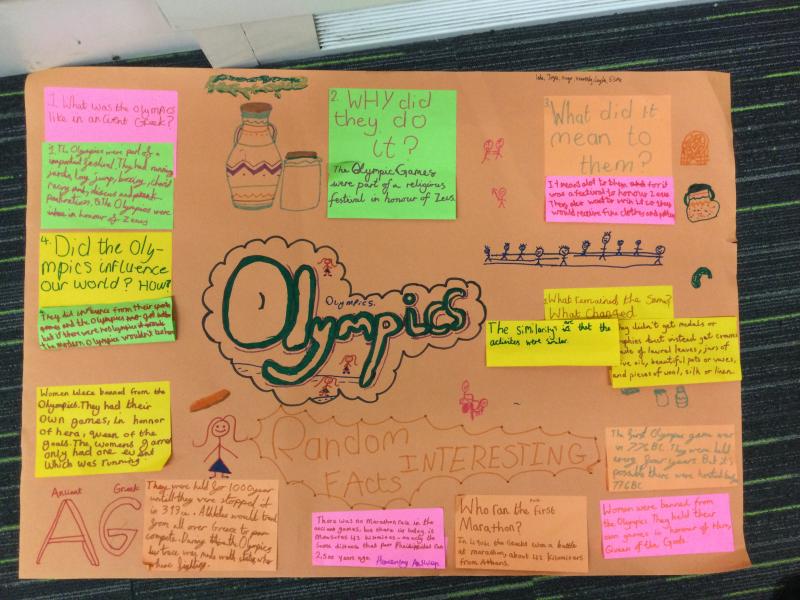 1. What was the Olympics
like in ancient Greek?
1. The Olympics were part of a
important festival. They had running
long jump, boxing, chariot
racing and discus and
The Olympics were
in honour of Zeus
2. WHY did
they do
it?
The Olympic Games
were part of a religious
festival in honour of Zeus.
3.
What did it
mean to
them?
It means alot to them and for it
was a festival to honour Zeus
They also want to win it so they
would receive fine clothes and
4.
Did the Oly-
mpics influence
our world? HOW?
They did influence from their
games and the Olympics
but if there were no Olympics
the modern Olympics wouldn't
Olympics
Olympics.
What remained the same?
What Changed
The similarity is are that the
activites were similar.
They didn't get medals or
but instead get crowns
made of laural leaves, jars of
olive oil, beautiful pots or vases,
and pieces of wool, silk or linen.
Women were banned from the
Olympics. They had their
own games, in honnor
of hera, queen of the
goals. The, womens games
only had one event
Which was running
Random
INTERESTING
FActs
The first Olympic game was
in 776 BC. They were held
every four years. But it's
possible there were
776 BC
Ancient Greek
AG
They were held for 1000 year
untill they were stopped it
in 393 . Athletes would travel
from all over Greece to
compete. During the Olympics
truce was made with cities who
where fighting.
There was no Marathon race in the
ancient games, but
measures 42 kilometres
same distance that poor Pheidippides ran
2,500 years ago.
Who ran the first
Marathon?
In 490 the Greeks won a battle
at marathon, about 42 kilometres
from Athens.
Women were banned from
the Olympics They held their
own games in honour of Hera,
Queen of the Gods.